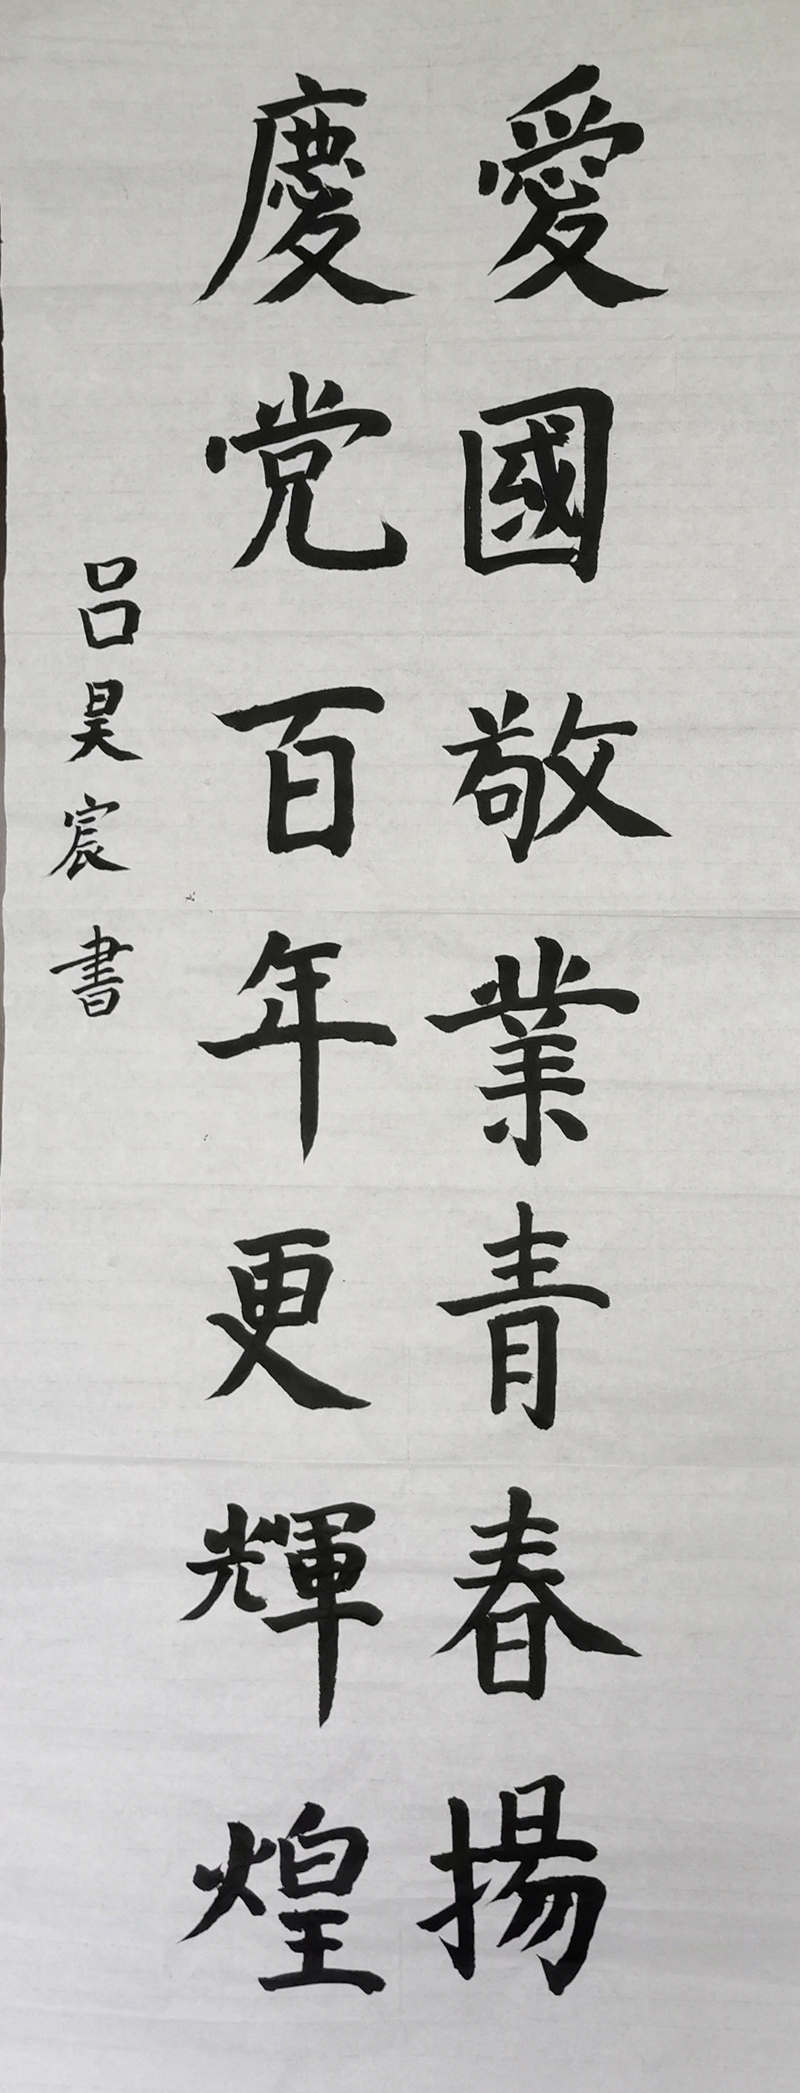 愛國敬業青春揚
慶党百年更輝煌
吕昊宸書